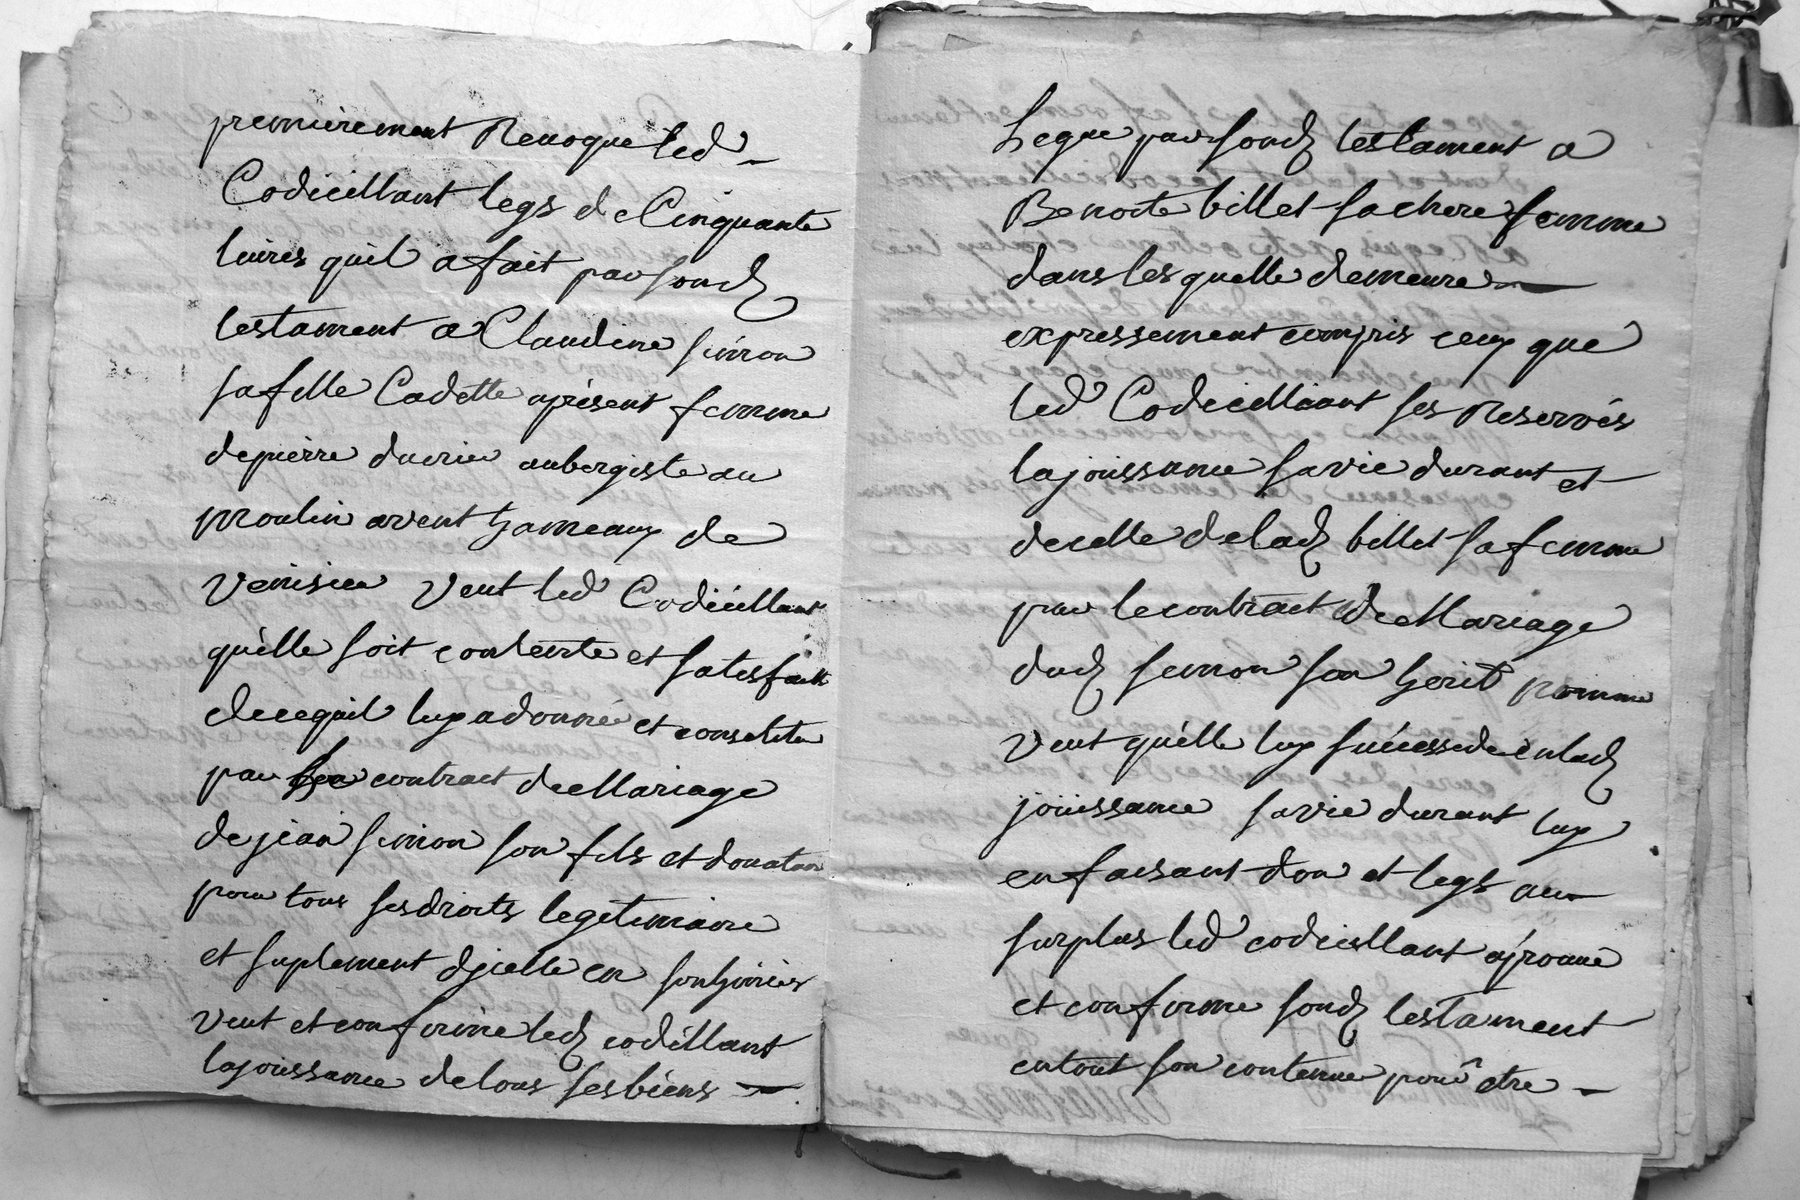 premierement Revoque led
Codicillant legs de Cinquante
livres quil a fait par sond
testament a Claudine simon
sa fille Cadette apresent femme
de pierre ducrie aubergiste au
moulin avent hameaux de
venisieu veut led Codicillant
quelle soit contente et satisfaitte
de cequil luy adonné et constitue
par contract de Mariage
de jean simon son fils et donataire
pour tous ses droits legitimaire
et suplement dicelle en son hoirie
veut et confirme led codicillant
la jouissance de tous ses biens
Legue par sond testament a
Benoite billet sa chere femme
dans lesquelle demeure
expressement compris ceux que
led Codicillant ses Reservés
la jouissance sa vie durant et
decelle de lad billet sa femme
par le contract de Mariage
dud simon son herit nommé
veut quelle luy succede en lad
jouissance sa vie durant luy
en faisant don et legs au
surplus led codicillant aprouve
et confirme sond testament
entout son contenue pour etre